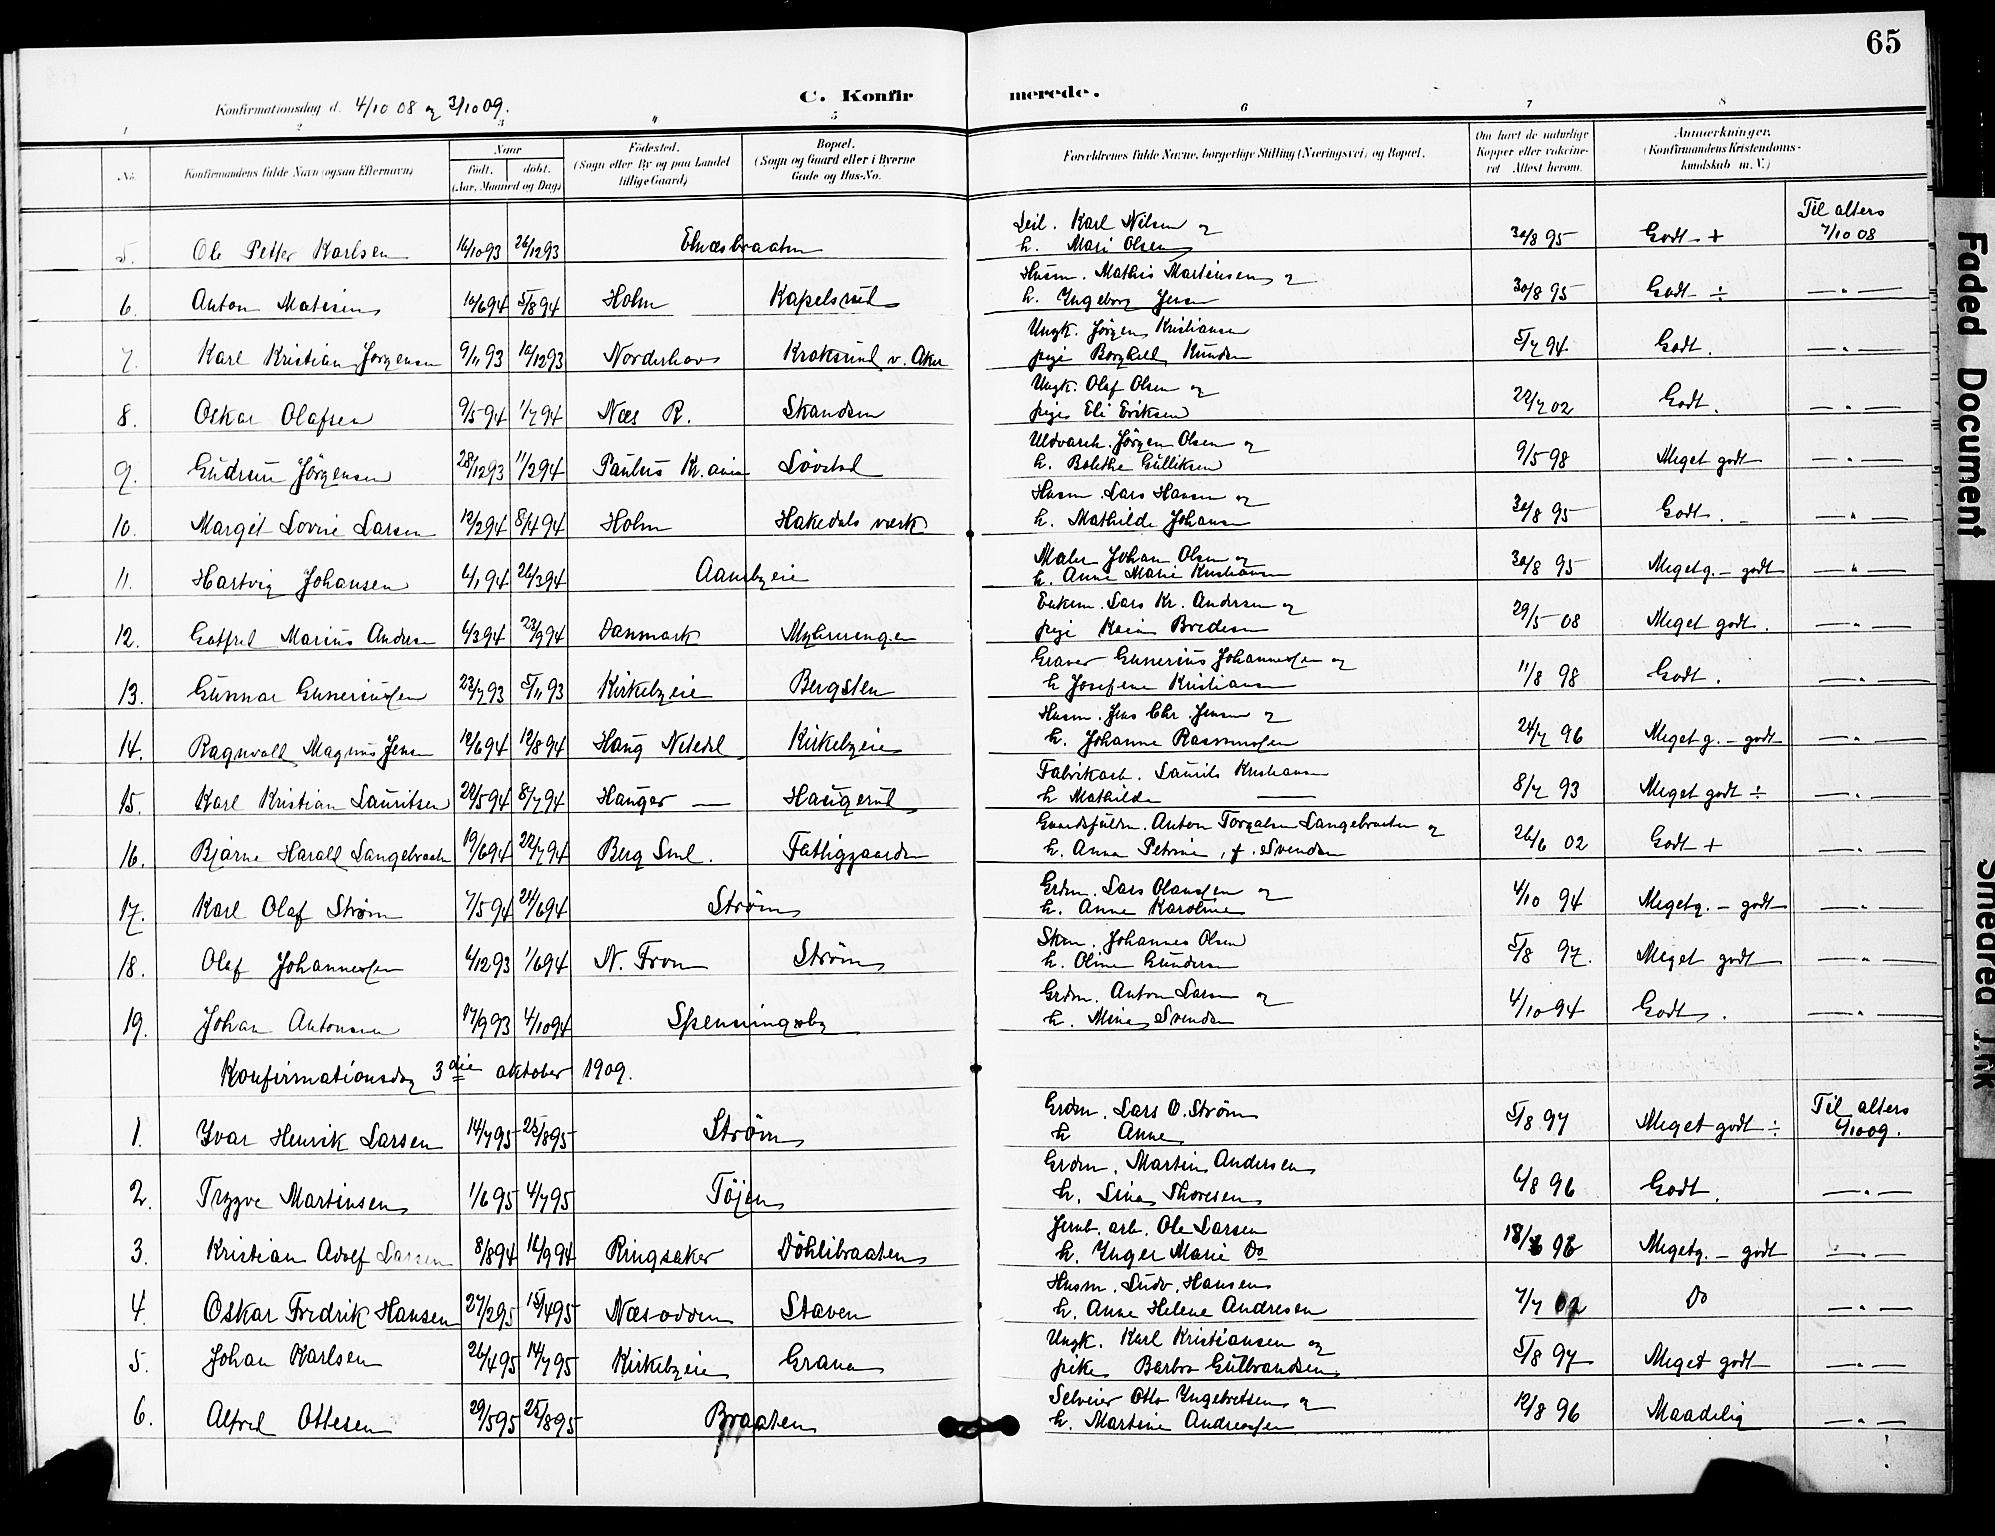 65
Konfirmationsdag d. 4/10 08 og 3/10 09.
C. Konfirmerede.
1 2 3 4 5 6 7 8
No. Konfirmandens fulde Navn (ogsaa Efternavn) Naar født, døbt. (Aar, Maaned og Dag) Fødested. (Sogn eller By og paa Landet tillige Gaard) Bopæl. (Sogn og Gaard eller i Byerne Gade og Hus-No. Forældrenes fulde Navne, borgerlige Stilling (Næringsvei) og Bopæl. Om havt de naturlige Kopper eller vakcineret Attest herom. Anmerkninger, (Konfirmandens Kristendomskundskab m. V.)
5. Ole Petter Karlsen 16/10 93 26/12 93 Elnæsbraaten Leil. Karl Nilsen og h. Mari Olsen 30/8 95 Godt + Til alters 7/10 08
6. Anton Matisen 10/6 94 5/8 94 Holm Kapelsrud Husm. Mathis Martinsen og h. Ingeborg Jensen 30/8 95 Godt ÷ — " —
7. Karl Kristian Jørgensen 9/11 93 16/12 93 Norderhov Kroksund v. Aker Ungk. Jørgen Kristiansen pige Borghild Knudsen 5/7 94 Godt. — " —
8. Oskar Olafsen 9/5 94 1/7 94 Næs R. Skandsen Ungk. Olaf Olsen og pige Eli Eriksen 22/7 02 Godt. — " —
9. Gudrun Jørgensen 28/12 93 11/2 94 Paulus Kr.ania Løvstad Uldvarefb. Jørgen Olsen og h. Bolethe Gulliksen 9/5 98 Meget godt — " —
10. Margit Lovise Larsen 12/2 94 8/4 94 Holm Hakedals værk Husm. Lars Hansen og h. Mathilde Johansen 30/8 95 Godt. — " —
11. Hartvig Johansen 6/1 94 26/3 94 Aanebyeie Maler Johan Olsen og h. Anne Marie Kristiansen 30/8 95 Megetg. – godt — " —
12. Gotfred Marius Andersen 6/3 94 23/9 94 Danmark Myhrerengen Enkem. Lars Kr. Andersen og pige Karin Bredesen 29/5 08 Meget godt. — " —
13. Gunnar Guneriussen 23/7 93 5/11 93 Kirkebyeie Bergsten Graver Gunerius Johannessen og h Josefine Kristiansen 11/8 98 Godt. — " —
14. Ragnvald Magnus Jensen 12/6 94 12/8 94 Haug Nitedal Kirkebyeie Husm. Jens Chr. Jensen og h. Johanne Rasmussen 24/7 96 Meget g. – godt — " —
15. Karl Kristian Lauritsen 20/5 94 8/7 94 Hauger — Haugerud Fabrikarb. Laurits Kristiansen h Mathilde — 8/7 93 Meget godt ÷ — " —
16. Bjarne Harald Langebraaten 19/6 94 22/7 94 Berg Sml. Fattiggaarden Gaardsfuldm. Anton Torgalsen Langebraaten og h. Anna Petrine, f. Svendsen 26/6 02 Godt + — " —
17. Karl Olaf Strøm 7/5 94 24/6 94 Strøm Grdm. Lars Olaussen og h. Anne Karoline 4/10 94 Megetg. – godt — " —
18. Olaf Johannessen 6/12 93 1/6 94 N. Fron Strøm Skm. Johannes Olsen h. Oline Gundersen 5/8 97. Meget godt — " —
19. Johan Antonsen 17/9 93 4/10 94 Spenningsby Grdm. Anton Larsen og h. Mina Svendsen 4/10 94 Godt. — " —
Konfirmationsdag 3die oktober 1909.
1. Ivar Henrik Larsen 14/7 95 25/8 95 Strøm Grdm. Lars O. Strøm h Anne 5/8 97 Meget godt ÷ Til alters 6/10 09.
2. Trygve Martinsen 1/6 95 4/7 95 Tøjen Grdm. Martin Andersen h. Lina Thoresen 6/8 96 Godt. — " —
3. Kristian Adolf Larsen 8/8 94 16/9 94 Ringsaker Døhlibraaten Jernb. arb. Ole Larsen h. Inger Marie Do 18/6 96 Megetg. – godt — " —
4. Oskar Fredrik Hansen 27/2 95 15/4 95 Næsodden Staven Husm. Ludv. Hansen h. Anne Helene Andresen 7/7 02 Do — " —
5. Johan Karlsen 26/4 95 14/7 95 Kirkebyeie Grana Ungk. Karl Kristiansen og pike Barbro Gulbrandsen 5/8 97 Meget godt — " —
6. Alfred Ottesen 29/5 95 25/8 95 Braaten Selveier Otto Ingebretsen og h. Martine Andreassen 12/8 96 Maadelig — " —
Faded Document
Smeared Ink